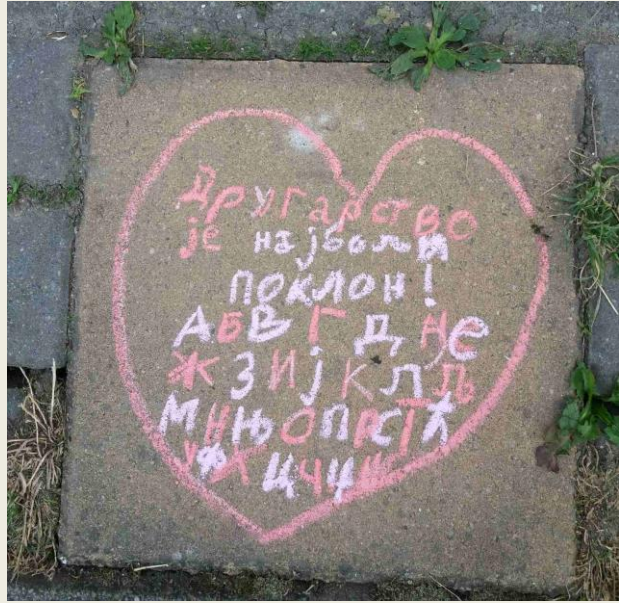 Другарство
је најбољи
поклон!
А Б В Г Д Ђ е
Ж З И Ј К Л Љ
М Н Њ О П Р С Т Ћ
У Ф Х Ц Ч Џ Ш